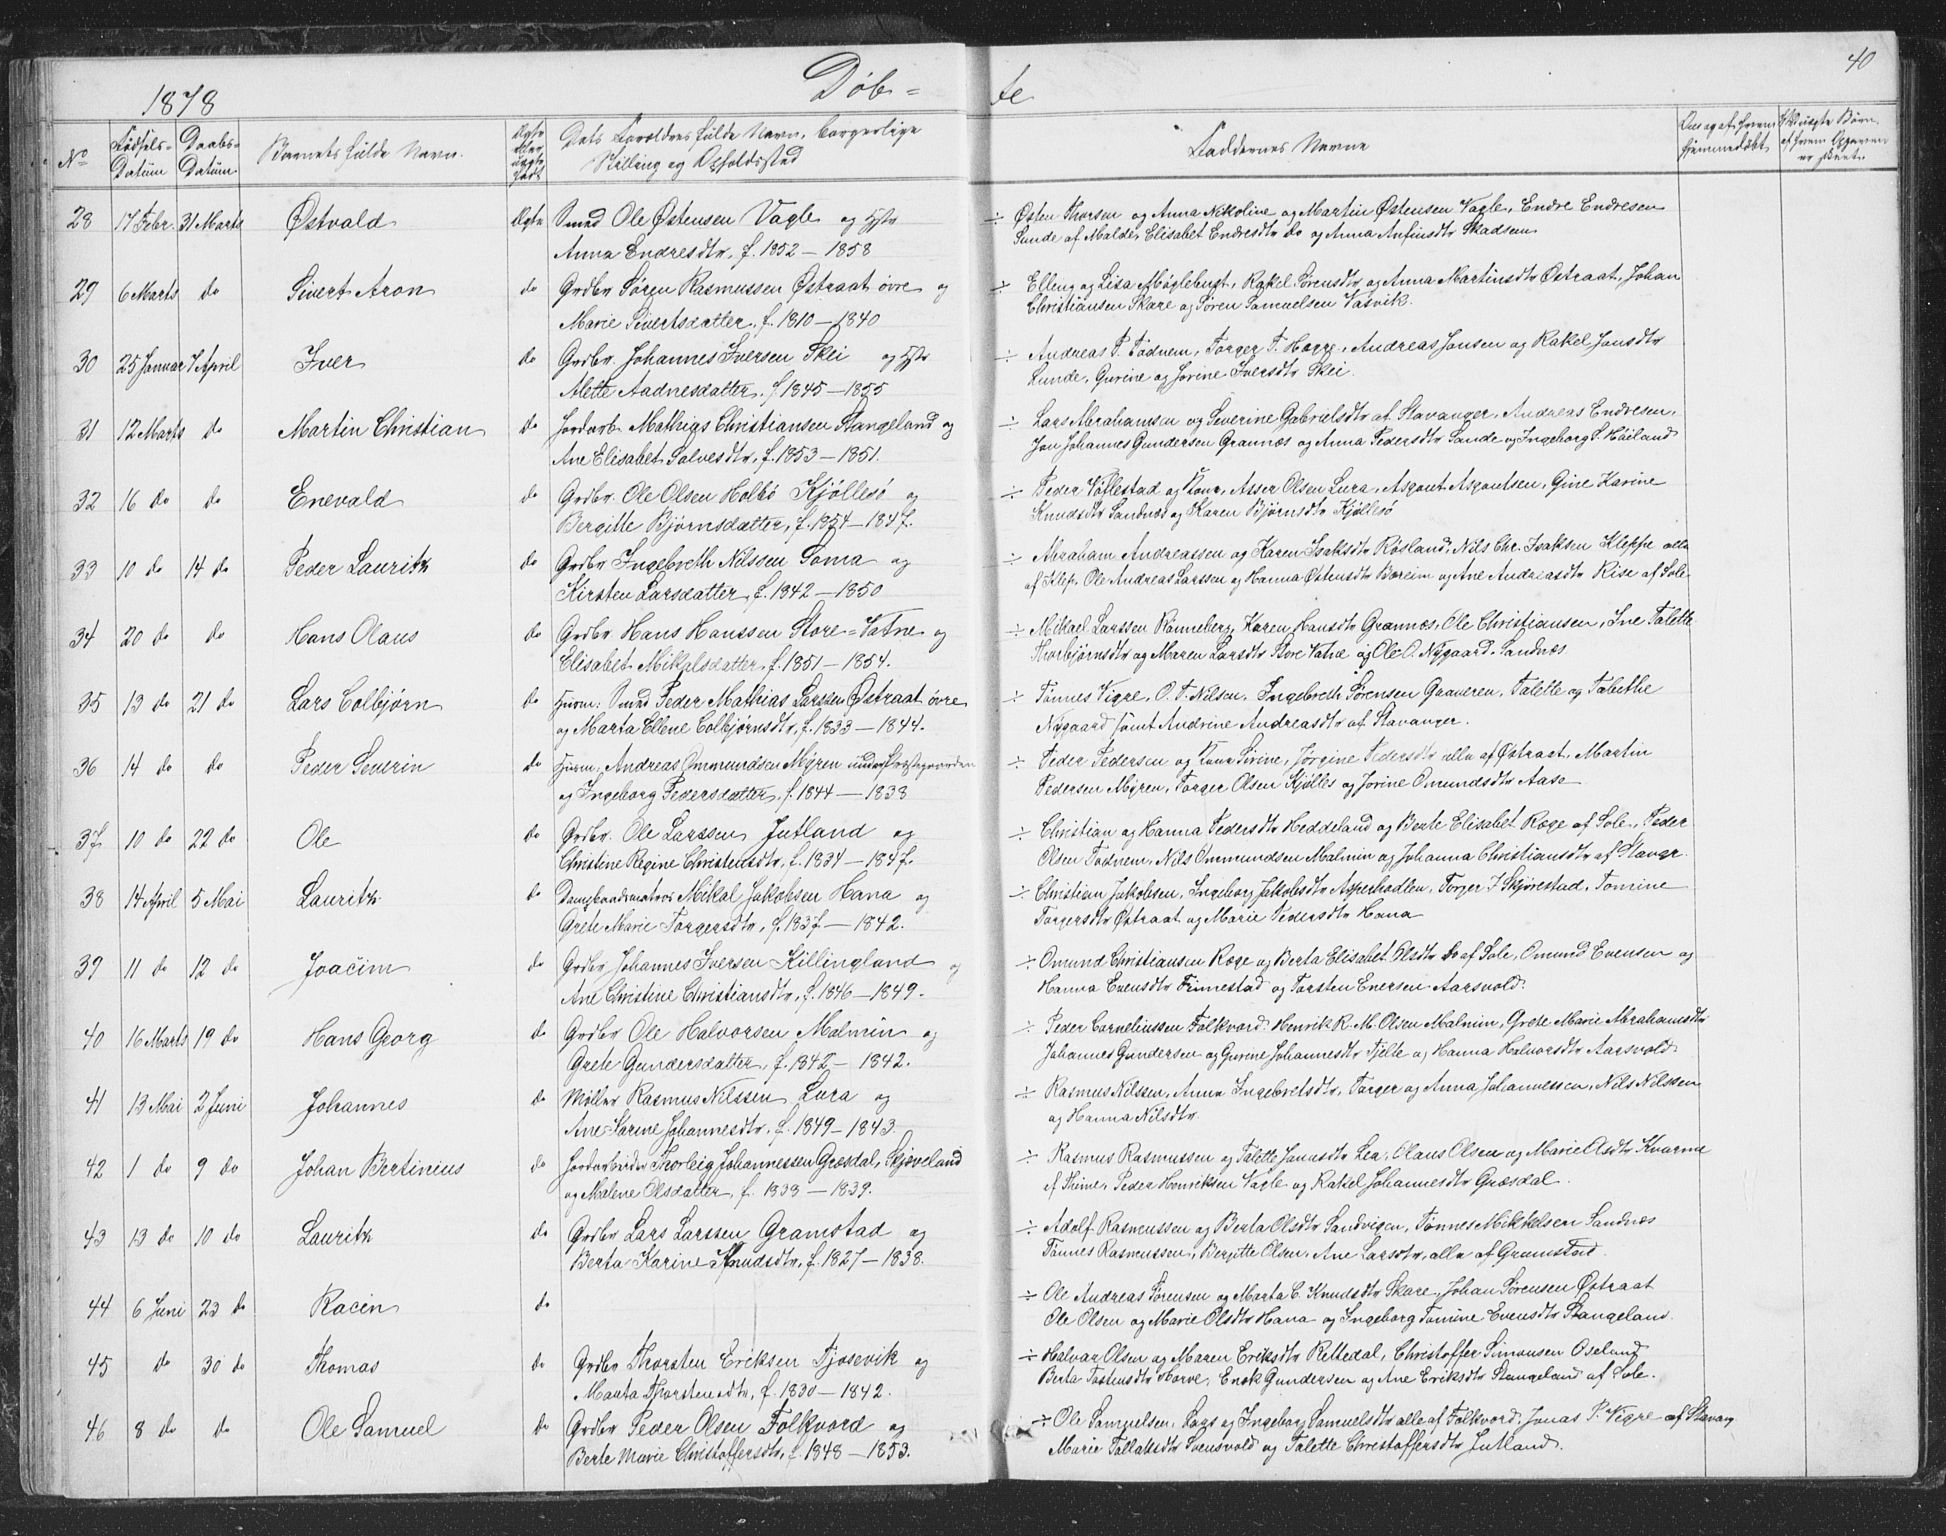 1878
Døb=
te
40
No
Fødsels-Datum
Daabs-Datum
Barnets fulde Navn.
Ægte eller uægte født
Dets Forældres fulde Navn, borgerlige
Stilling og Opholdssted
Faddernes Navne
Om og af hvem hjemmedøbt
28 17 Febr. 31 Marts Østvald Ægte Smed Ole Østensen Vagle og Hstr
Anna Endresdtr, f. 1852 – 1858
÷ Østen Thorsen og Anna Nikoline og Martin Østensen Vagle, Endre Endresen
Sunde af Malde, Elisabet Endresdtr do og Anna Anfinsdtr Skadsem
29 6 Marts do Sivert Aron do Grdbr Søren Rasmussen Østraat øvre og
Marie Sivertsdatter, f. 1810 – 1840
÷ Elling og Lisa Møglebugt, Rakel Sørensdtr og Anna Martinsdtr Østraat, Johan
Christiansen Skare og Søren Samuelsen Vasvik.
30 25 Januar 7 April Iver do Grdbr. Johannes Iversen Skei og Hstr
Alette Aadnesdatter, f 1845 – 1855
÷ Andreas P. Fodnem, Torger T. Hegge, Andreas Jonsen og Rakel Jonsdtr
Lunde, Gurine og Jorine Iversdtr Skei.
31 12 Marts do Martin Christian do Jordarb. Mathias Christiansen Stangeland og
Ane Elisabet Salvesdtr, f. 1853 – 1851.
÷ Lars Abrahamsen og Severine Gabrielsdtr af Stavanger, Andreas Endresen,
Jon Johannes Gundersen Grannes og Anna Pedersdtr Sande og Ingeborg S. Høiland
32 16 do do Enevald do Grdbr. Ole Olsen Holbø Kjøllesø og
Bergitte Bjørnsdatter, f. 1854 – 1847.
÷ Peder Vatlestad og Kone, Asser Olsen Lura, Asgaut Asgautsen, Gine Karine
Knudsdtr Sandnæs og Karen Bjørnsdtr Kjøllesø
33 10 do 14 do Peder Lauritz do Grdbr Ingebreth Nilssen Soma og
Kirsten Larsdatter, f. 1842 – 1850
÷ Abraham Andreassen og Karen Isaksdtr Røsland, Nils Chr. Isaksen Kleppe alle
af Klep. Ole Andreas Larssen og Hanna Østensdtr Bæreim og Ane Andreasdtr Rise af Sole.
34 20 do do Hans Olaus do Grdbr. Hans Hanssen Store=Vatne og
Elisabet Mikalsdatter, f. 1851 – 1854.
÷ Mikael Larssen Rønneberg, Karen Hansdtr Grannæs, Ole Christiansen, Ine Talette
Thorbjørnsdtr og Maren Larsdtr Store Vatne og Ole O. Nygaard Sandnæs
35 13 do 21 do Lars Colbjørn do Husm. Smed Peder Mathias Larssen Østraat øvre
og Marta Ellene Colbjørnsdtr, f. 1833 – 1844.
÷ Tønnes Vigre, O. T. Nilsen, Ingebreth Sørensen Gaaveren, Talette og Tabethe
Nygaard samt Andrine Andreasdtr af Stavanger.
36 14 do do Peder Severin do Husm. Andreas Ommundsen Myren under Præstegaarden
og Ingeborg Pedersdatter, f. 1844 – 1838
÷ Peder Pedersen og Kone Sirine, Jørgine Pedersdtr alle af Østraat, Martin
Pedersen Myren, Torger Olsen Kjølles og Jorine Omundsdtr Aase
37 10 do 22 do Ole do Grdbr. Ole Larssen Jutland og
Christine Regine Christensdtr, f. 1834 – 1847.
÷ Christian og Hanna Pedersdtr Heddeland og Berte Elisabet Røge af Sole, Peder
Olsen Todnem, Nils Ommundsen Malmin og Johanna Christiansdtr af Stavgr.
38 14 April 5 Mai Lauritz do Mikal Jakobsen Hana og
Grete Marie Torgersdtr, f. 1837 – 1842.
÷ Christian Jakobsen, Ingeborg Jakobsdtr Asperhadlen, Torger I Skjørestad, Tomine
Torgersdtr Østraat og Marie Pedersdtr Hana
39 11 do 12 do Joacim do Grdbr Johannes Iversen Killingland og
Ane Christine Christiansdtr, f. 1846 – 1849.
÷ Omund Christiansen Røge og Berta Elisabet Olsdtr do af Sole, Omund Evensen og
Hanna Evensdtr Finnestad og Torsten Enersen Aarsvold.
40 16 Marts 19 do Hans Georg do Grdbr Ole Halvorsen Malmin og
Grete Gundersdatter, f. 1842 – 1842.
÷ Peder Corneliussen Folkvord, Henrik R. M. Olsen Malmin, Grete Marie Abrahamsdtr
Johannes Gundersen og Gurine Johannesdtr Tjelte og Hanna Halvorsdtr Aarsvold
41 13 Mai 2 Juni Johannes do Møller Rasmus Nilssen Lura og
Ane Karine Johannesdtr. f. 1849 – 1843.
÷ Rasmus Nilssen, Anna Ingebretsdtr, Torger og Anna Johannessen, Nils Nilssen
og Hanna Nilsdtr
42 1 do 9 do Johan Bertinius do Jordarbeider Thorleig Johannessen Græsdal, Skjæveland
og Malene Olsdatter, f. 1838 – 1839.
÷ Rasmus Rasmussen og Talette Jonasdtr Lea, Olaus Olsen og Marie Olsdtr Kvarme
af Thime, Peder Henriksen Vagle og Rakel Johannesdtr Græsdal.
43 13 do 10 do Lauritz do Grdbr Lars Larssen Gramstad og
Berta Karine Knudsdtr, f. 1827 – 1838.
÷ Adolf Rasmussen og Berta Olsdtr Sandvigen, Tønnes Mikkelsen Sandnæs
Tønnes Rasmussen, Bergitte Olsen, Ane Larsdtr, alle af Gramstad.
44 6 Juni 23 do Racin do
÷ Ole Andreas Sørensen og Marta C. Knudsdtr Skare, Johan Sørensen Østraat
Ole Olsen og Marie Olsdtr Hana og Ingeborg Tomine Evensdtr Stangeland.
45 do 30 do Thomas do Grdbr Thorsten Eriksen Tjosevik og
Marta Thorstensdtr, f. 1830 – 1842.
÷ Halvar Olsen og Maren Eriksdtr Rettedal, Christoffer Simonsen Oseland
Berta Tostensdtr Horve, Enok Gundersen og Ane Eriksdtr Stangeland af Sole.
46 8 do do Ole Samuel do Grdbr Peder Olsen Folkvord og
Berte Marie Christoffersdtr, f. 1848 – 1853.
÷ Ole Samuelsen, Lars og Ingeborg Samuelsdtr alle af Folkvord, Jonas P. Vigre af Stavang
Marie Tollaksdtr Svensvold og Talette Christoffersdtr Jutland.